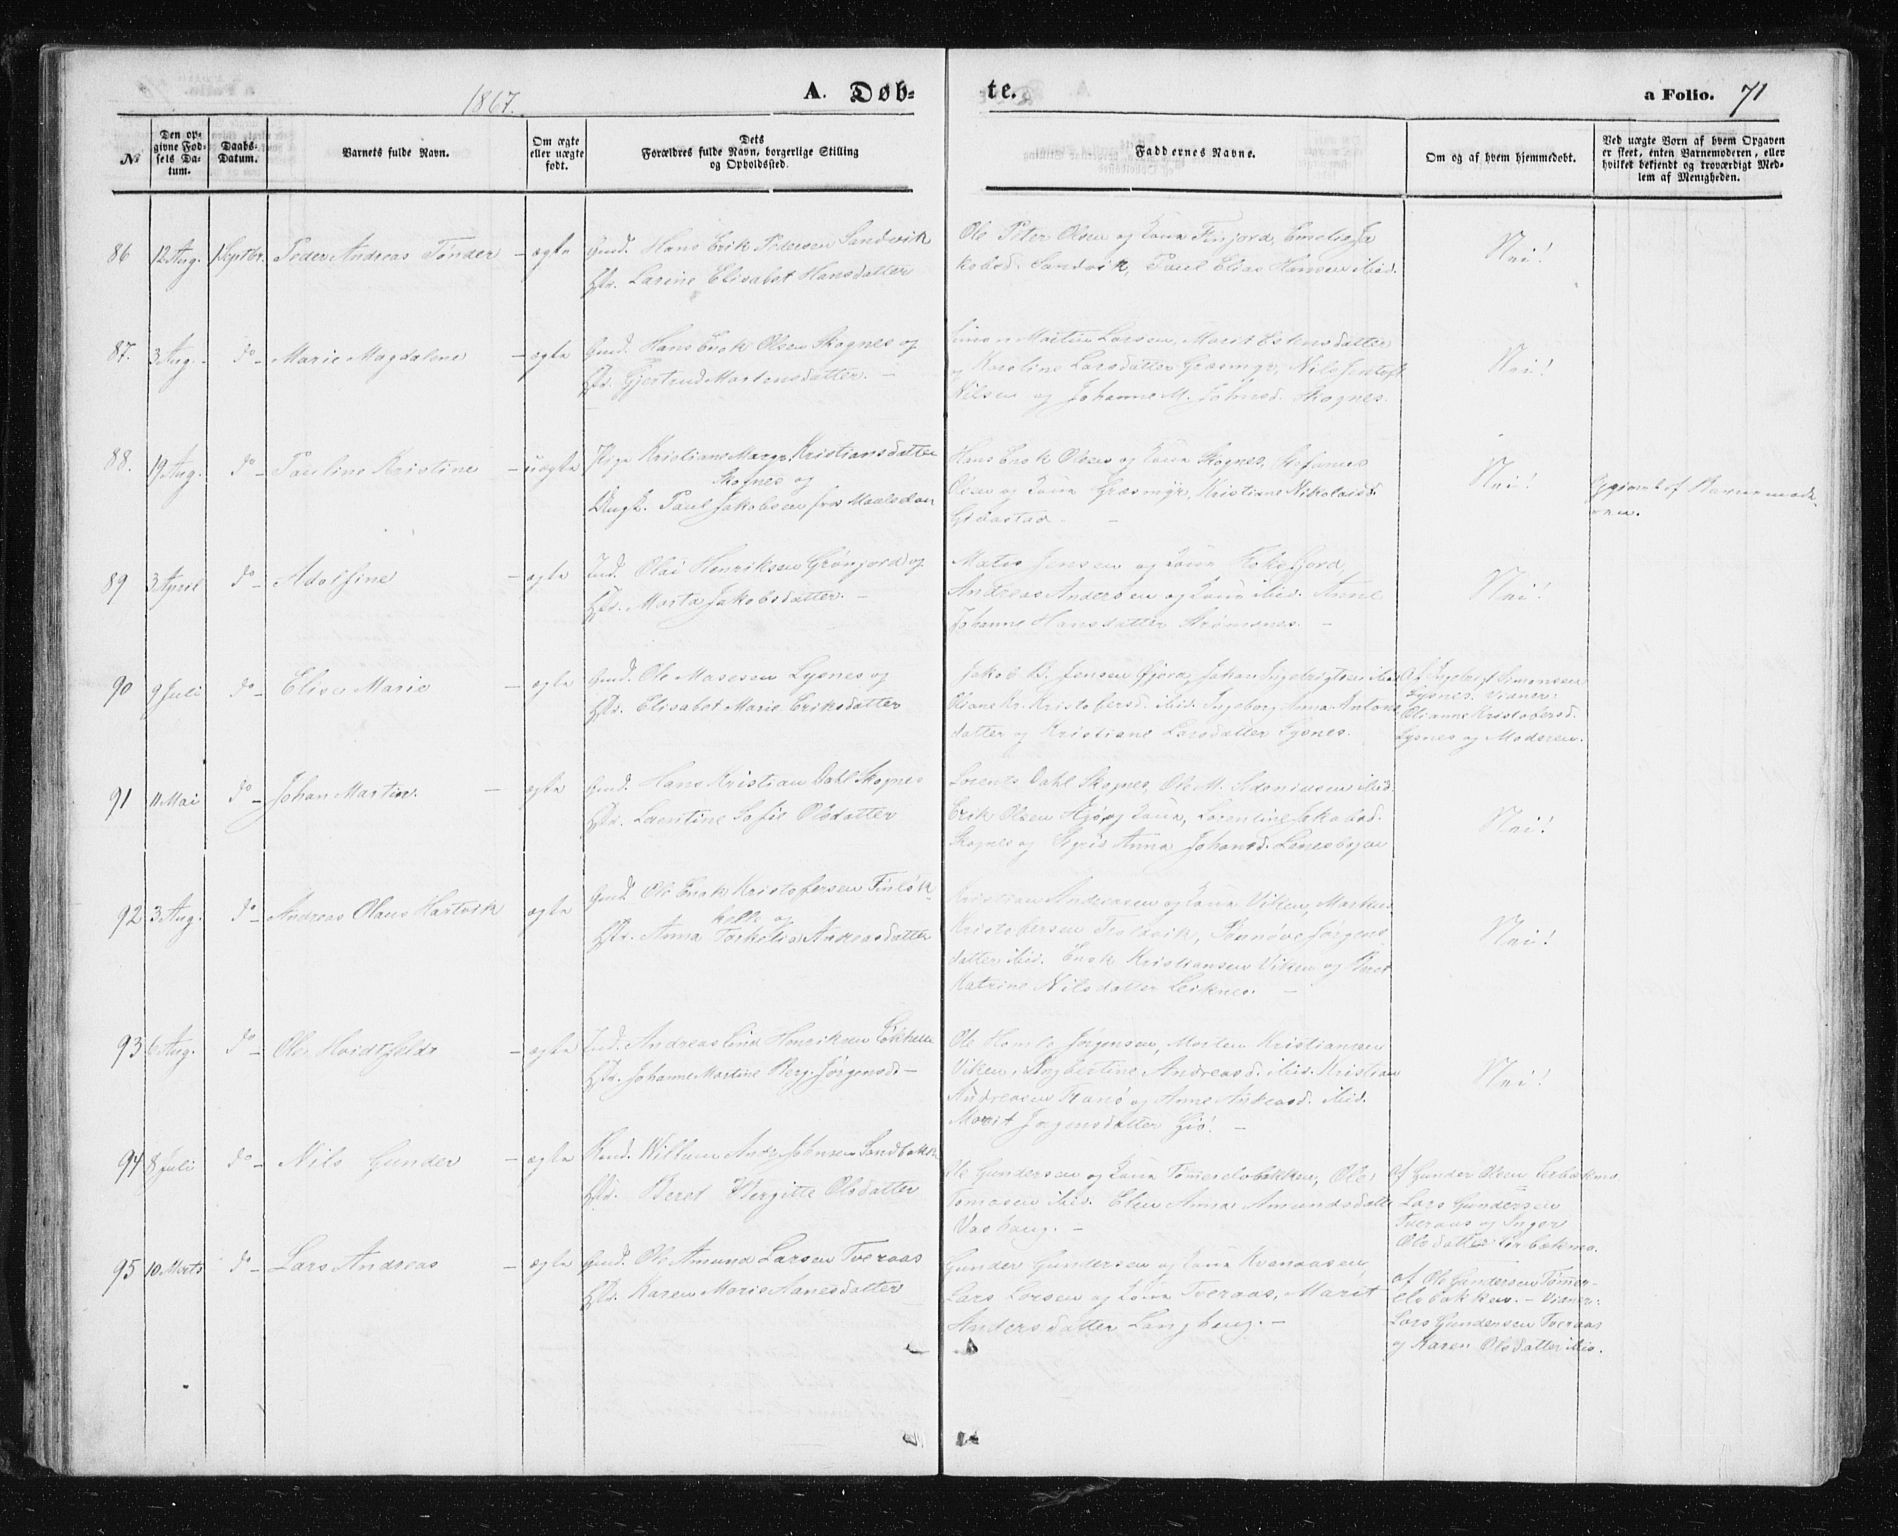 1867.
A. Døb-
te.
a Folio. 71
№
Den op-
givne Fød-
sels Da-
tum.
Daabs-
Datum.
Barnets fulde Navn.
Om ægte
eller uægte
født.
Dets
Forældres fulde Navn, borgerlige Stilling
og Opholdssted.
Faddernes Navne.
Om og af hvem hjemmedøbt.
Ved uægte Børn af hvem Opgaven
er skeet, enten Barnemoderen, eller
hvilket bekjendt og troværdigt Med-
lem af Menigheden.
86 12 Aug. 1 Septbr. Peder Andreas Tønder – ægte
Gmd. Hans Erik Pedersen Sandvik
Hst. Larine Elisabet Hansdatter
Ole Peter Olsen og Kone Finjord, Emelie Ja
kobsd. Sandvik, Poul Elias Hansen ibid.
Nei!
87. 3 Aug. – do – Marie Magdalene – ægte
Gmd. Hans Enok Olsen Skognes og
Hst. Gjertrud Martensdatter. –
Martin Larsen, Marit Estensdatter
og Karoline Larsdatter Græsmyr, Nils Jentoft
Nilsen og Johanne M. Johnsd. Skognes.
Nei!
88. 19 Aug. do – Pauline Kristine – uægte
Pige Kristiane Margr. Kristiansdatter
Skognes og
Ungk. Paul Jakobsen fra Maalselven
Hans Enok Olsen og Kone Skognes, Stefanus
Olsen og Kone Græsmyr, Kristiane Nikolaisd.
Gibostad. –
Nei!
Opgivet af Barnemode
ren.
89 3 April do – Adolfine – ægte
Ind. Olai Henriksen Grønjord og
Hst. Marta Jakobsdatter. –
Jensen og Kone Fokefjord,
Andreas Andersen og Kone ibid. Anne
Johanne Hansdatter Strømsnes. –
Nei!
90 9 Juli do – Elise Marie – ægte
Gmd. Ole Masesen Lysnes og
Hst. Elisabet Marie Eriksdatter
Jakob B. Jensen Gjøra, Johan Ingebrigtsen ibid.
Oliane Kr. Kristofersd. ibid. Ingeborg Anna Antons
datter og Kristiane Larsdatter Lysnes.
Af Ingebrigt Simonsen
Lysnes. Vidner:
Olianne Kristofersd.
Lysnes og Moderen.
91 11 Mai do – Johan Martin. – ægte
Gmd. Hans Kristian Dahl Skognes
Hst. Laentine Sofie Olsdatter
Lorents Dahl Skognes, Ole M. Adoniusen ibid.
Erik Olsen og Kone, Lorentine Jakobsd.
Skognes og Sigris Anna Johansd.
Nei!
92 3 Aug. do – Andreas Olaus Hartvik – ægte
Gmd. Ole Enok Kristofersen Finløk
helle og
Hst. Anna Torkelia Andreasdatter
Kristian Andreasen og Kone Viken, Markus
Kristofersen Trolvik, Sønnøve Jørgens
datter ibid. Enok Kristiansen Viken og Beret
Katrine Nilsdatter Leiknes. –
Nei!
93 6 Aug. do – Ole Hvidtfeldt – ægte
Ind. Andreas Henriksen Løkhelle
Hst. Johanne Martine Berg. Jørgensd. –
Ole Jørgensen, Morten Kristiansen
Viken, Andreasd. ibid. Kristian
Andreasen Tranø og Anne Andreasd. ibid.
Marit Jørgensdatter Giø. –
Nei!
94 8 Juli do – Nils Gunder – ægte
Willum Andr. Jønsen Sandbakk
Hst. Beret Bergitte Olsdatter
Ole Gundersen og Kone Tømerelvbakken, Ole
Tomasen ibid. Elen Anna Amundsdatter
Vashaug. –
Af Gunder Olsen Lerbakmo
Lars Gundersen
Tveraas og Inger
Olsdatter Lerbakmo.
95 10 Marts do – Lars Andreas – ægte
Gmd. Ole Amund Larsen Tveraas
Hst. Karen Marie Hansdatter
Gunder Gundersen og Kone Kvenaasen,
Lars Larsen og Kone Tveraas, Marit
Andersdatter Langhaug. –
af Ole Gundersen Tømer-
elvbakken. – Vidner:
Lars Gundersen Tveraas
og Karen Olsdatter ibid.